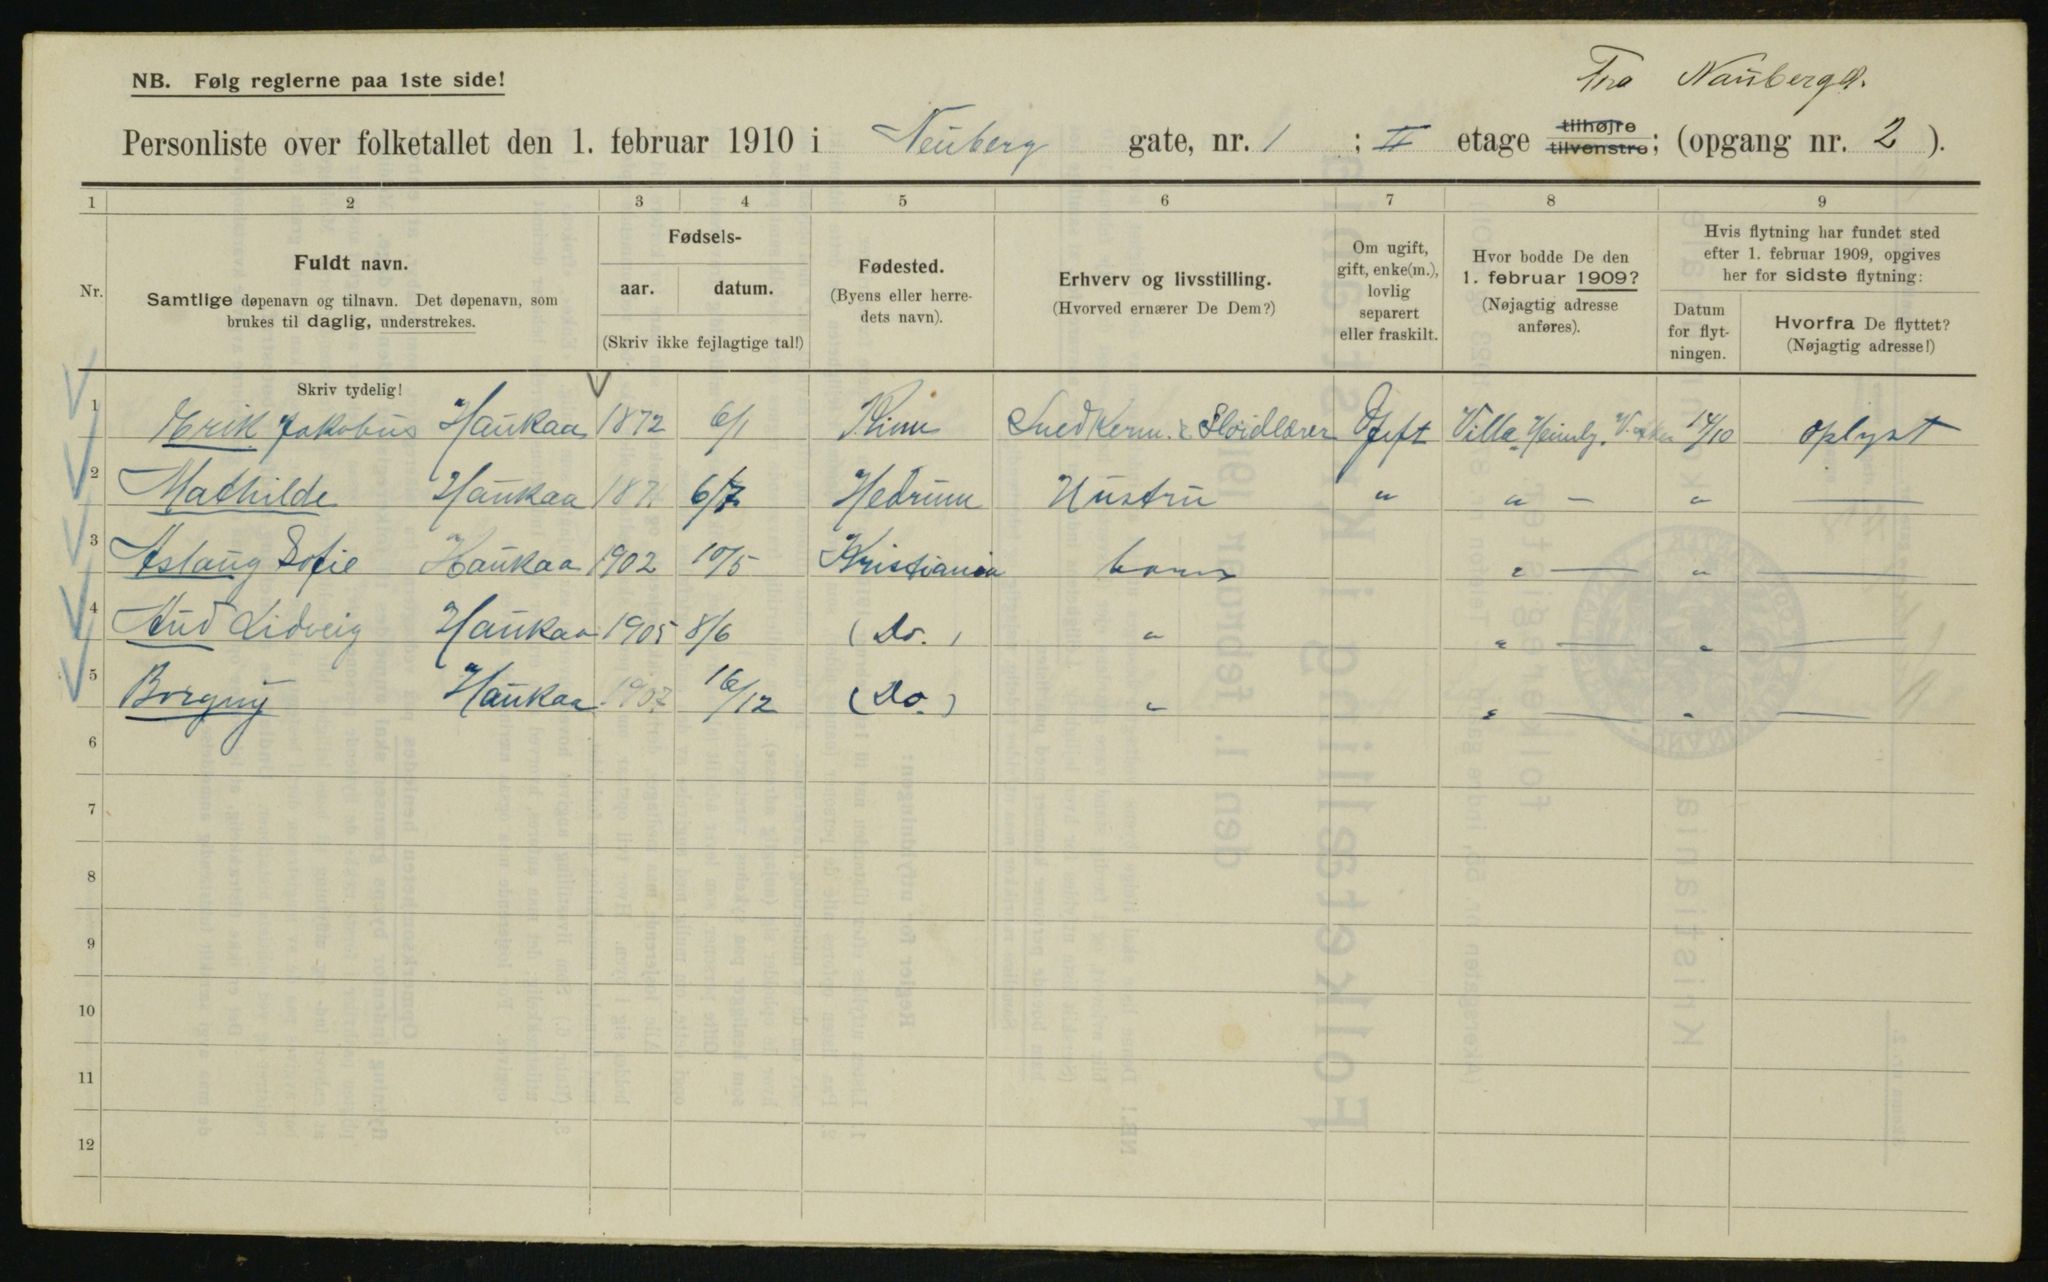 Fra Naubergd.
NB. Følg reglerne paa 1ste side!
Personliste over folketallet den 1. februar 1910 i Neuberg gate, nr. 1 ; II etage tilhøjre tilvenstre; (opgang nr. 2 ).
1 2 3 4 5 6 7 8 9
Nr.
Fuldt navn.
Samtlige døpenavn og tilnavn. Det døpenavn, som
brukes til daglig, understrekes.
Skriv tydelig!
Fødsels-
aar. datum.
(Skriv ikke fejlagtige tal!)
Fødested.
(Byens eller herre-
dets navn).
Erhverv og livsstilling.
(Hvorved ernærer De Dem?)
Om ugift,
gift, enke(m.),
lovlig
separert
eller fraskilt.
Hvor bodde De den
1. februar 1909?
(Nøjagtig adresse
anføres).
Hvis flytning har fundet sted
efter 1. februar 1909, opgives
her for sidste flytning:
Datum
for flyt-
ningen.
Hvorfra De flyttet?
(Nøjagtig adresse!)
1 Erik Jakobus Haukaa 1872 6/1 Kinn Snedkerm. & Sløidlærer Gift Villa Heimly, V. Aker 14/10 oplyst
2 Mathilde Haukaa 187 6/7 Hedrum Hustru " " — " —
3 Aslaug Sofie Haukaa 1902 10/5 Kristiania barn " — " —
4 Aud Lidveig Haukaa 1905 8/6 (Do.) " " — " —
5 Borgny Haukaa 1907 16/12 (Do.) " " — " —
6
7
8
9
10
11
12